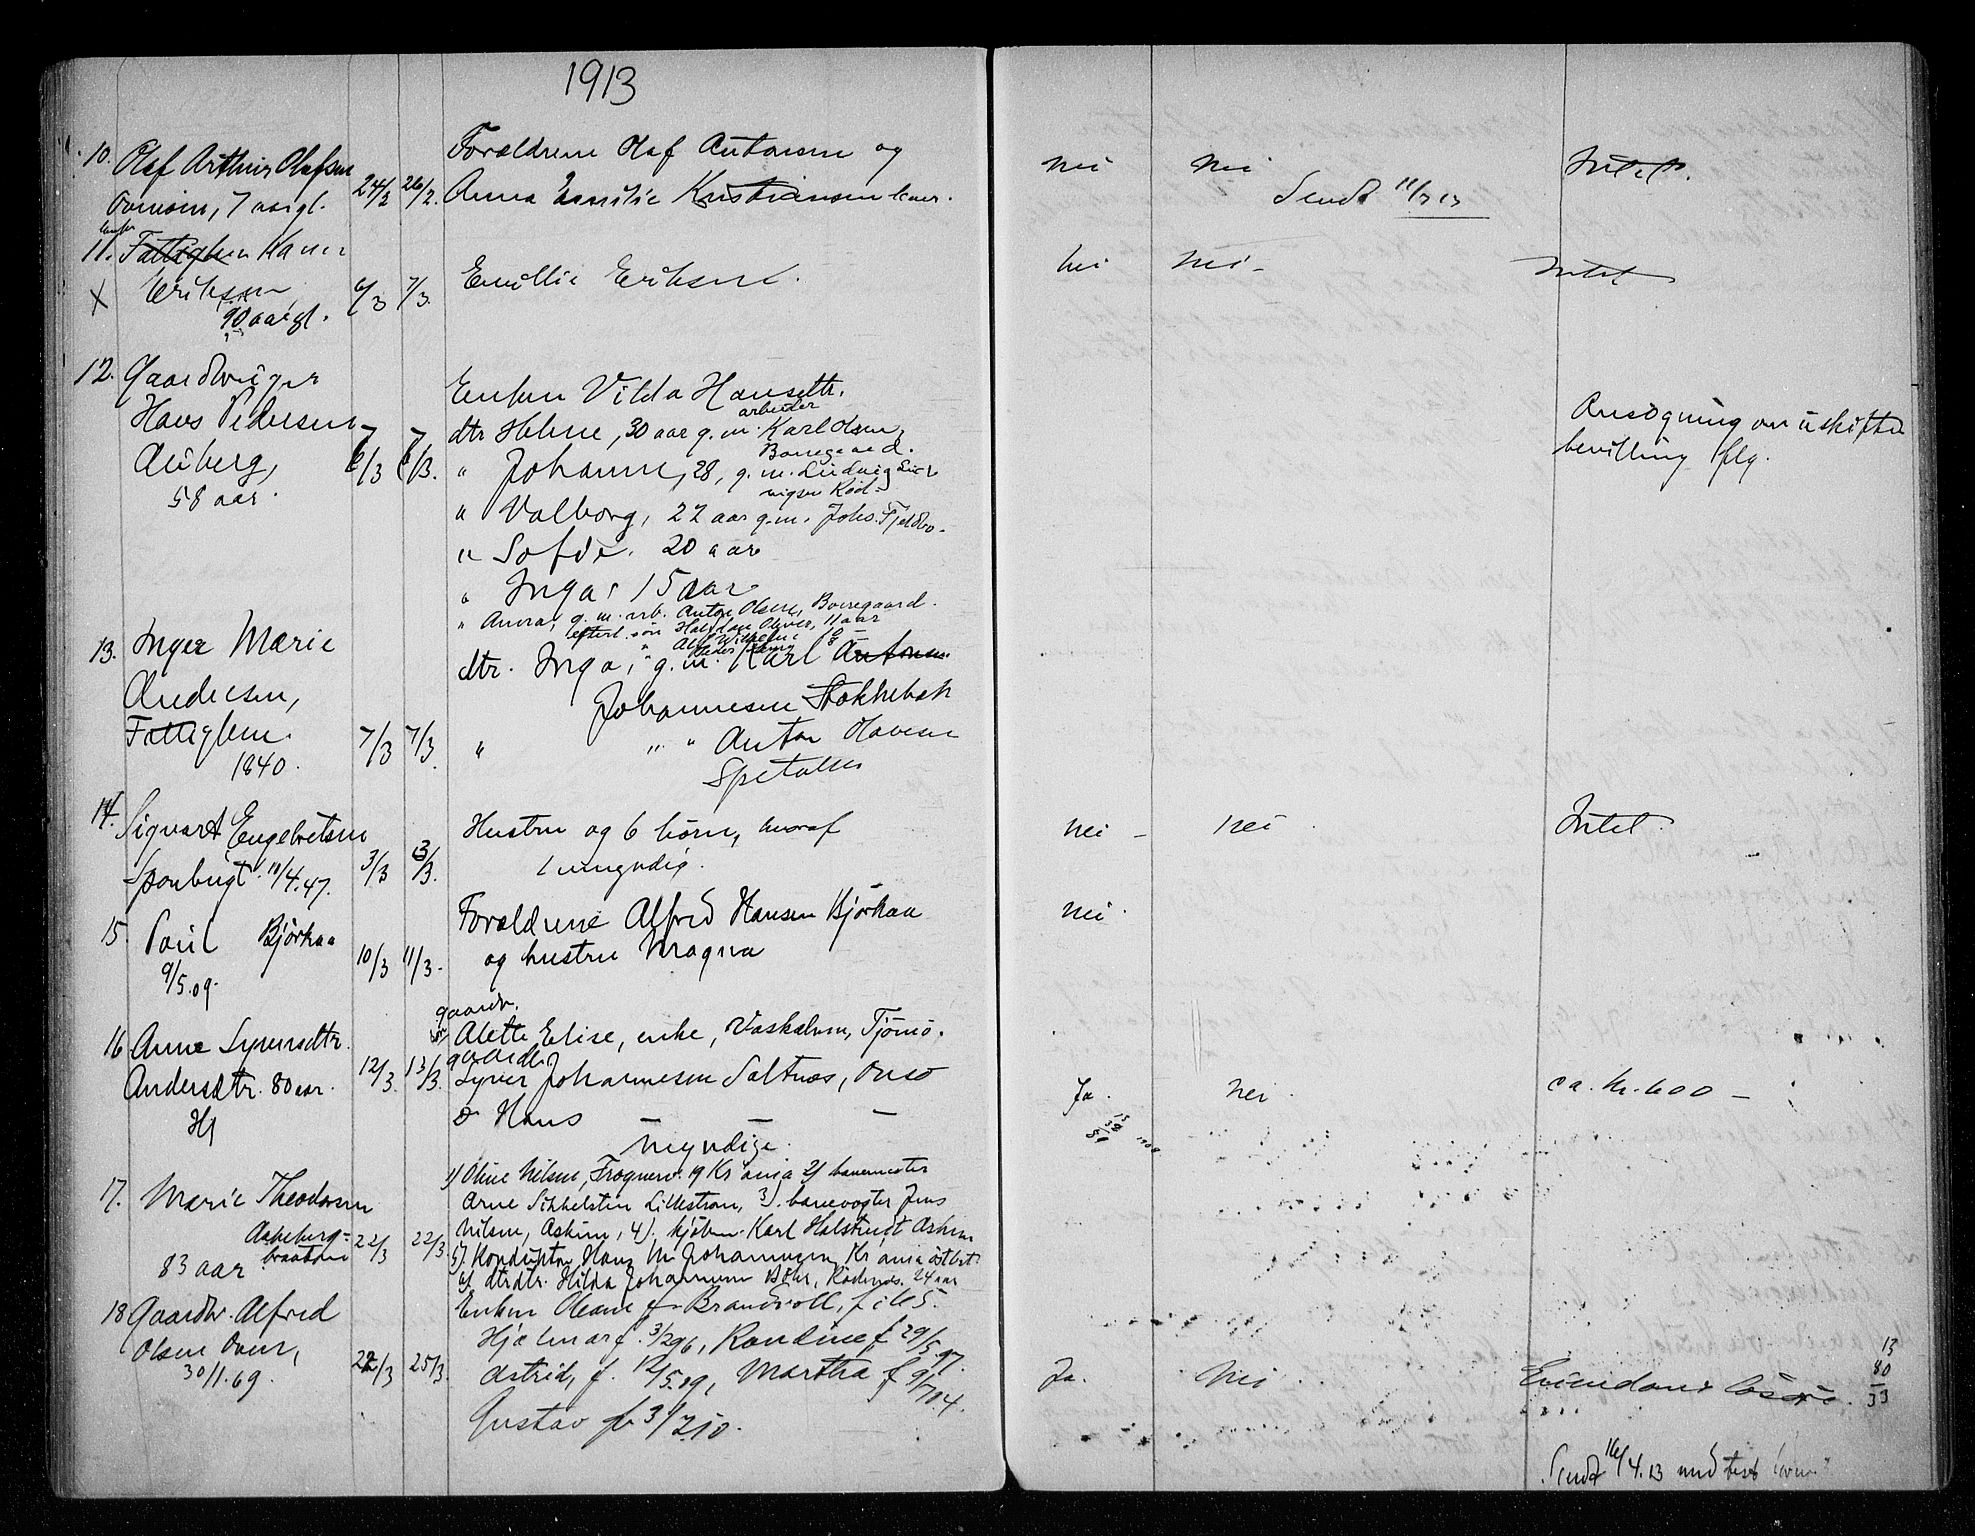 1913
10. Olaf Arthur Olafsen
7 aarigl.
24/2 26/2.
Forældrene Olaf Antonsen og
Anna Emilie Kristiansen lever.
nei nei Intet.
Sendt 11/3 13
11. Fattiglem Karen
X Eriksen
90 aar gl.
6/3 7/3.
Emilie Eriksen.
nei nei - Intet
12. Gaardbruger
Hans Pedersen
Auberg,
58 aar.
7/3.
Enken Vilda Hansdtr.
dtr Helene, 30 aar g.m. arbeider Karl Olsen,
Borregaard.
" Johanne, 28, g.m. Ludvig Lud-
vigsen Rød -
" Valborg, 22 aar g.m. Johs. Fjeldbo -
" Sofie. 20 aar
" Inga, 15 aar
" Anna, g.m. arb. Anton Olsen, Borregaard.
efterl. søn Halfdan Oliver, 11 aar
Ansøgning om uskifte
bevilling flg.
13. Inger Marie
Andersen,
Fattiglem.
1840.
7/3 7/3
dtr. Inga, g.m. Karl Anton
Johannesen Stokkebæk
" " " Anton Hansen
Spetalen
14. Sigvart Engebretsen
Sponbugt. 10/4.47.
3/3 6/3.
Hustru og 6 børn, hvoraf
1 umyndig.
nei - nei Intet.
15. Poul Bjørkaa
9/5.09.
10/3 11/3.
Forældrene Alfred Hansen Bjørkaa
og hustru Magna
nei
16 Anne Syversdtr.
Andersdtr. 80 aar.
12/3. 13/3.
gaardbr.
Alette Elise, enke, Vaskalven, Tjømø.
gaardbr.
Syver Johannesen Saltnæs, Onsø
Hans — —
myndige.
Ja. nei. ca. kr. 600 -
17. Marie Theodorsen
Aakeberg-
braaten
83 aar
22/3 22/3
1) Oline Nilsen, Frognerv. 19 Kr ania 2) banemester
Arne Sikkelstien Lillestrøm, 3). banevogter Jens
Nilsen, Askim, 4). kjøbm. Karl Halstvedt Askim
5). Konduktør Hans M. Johannesen, Kr ania østbst
6) dtrdtr. Hilda Johannesen Bøhr, Rødenes. 24 aar
18 Gaardbr. Alfred
Olsen
30/1.69.
22/3 25/3
Enken Oleane f. Brandvoll, f. 16 5.
Hjalmar f. 3/2 96, Randine f 29/5.97.
Astrid, f. 12/5.09, Martha f 9/7 04.
Gustav f. 3/7.10.
Ja. Nei Eiendom løsøre. 13
80
33
Sendt 16/4.13 med